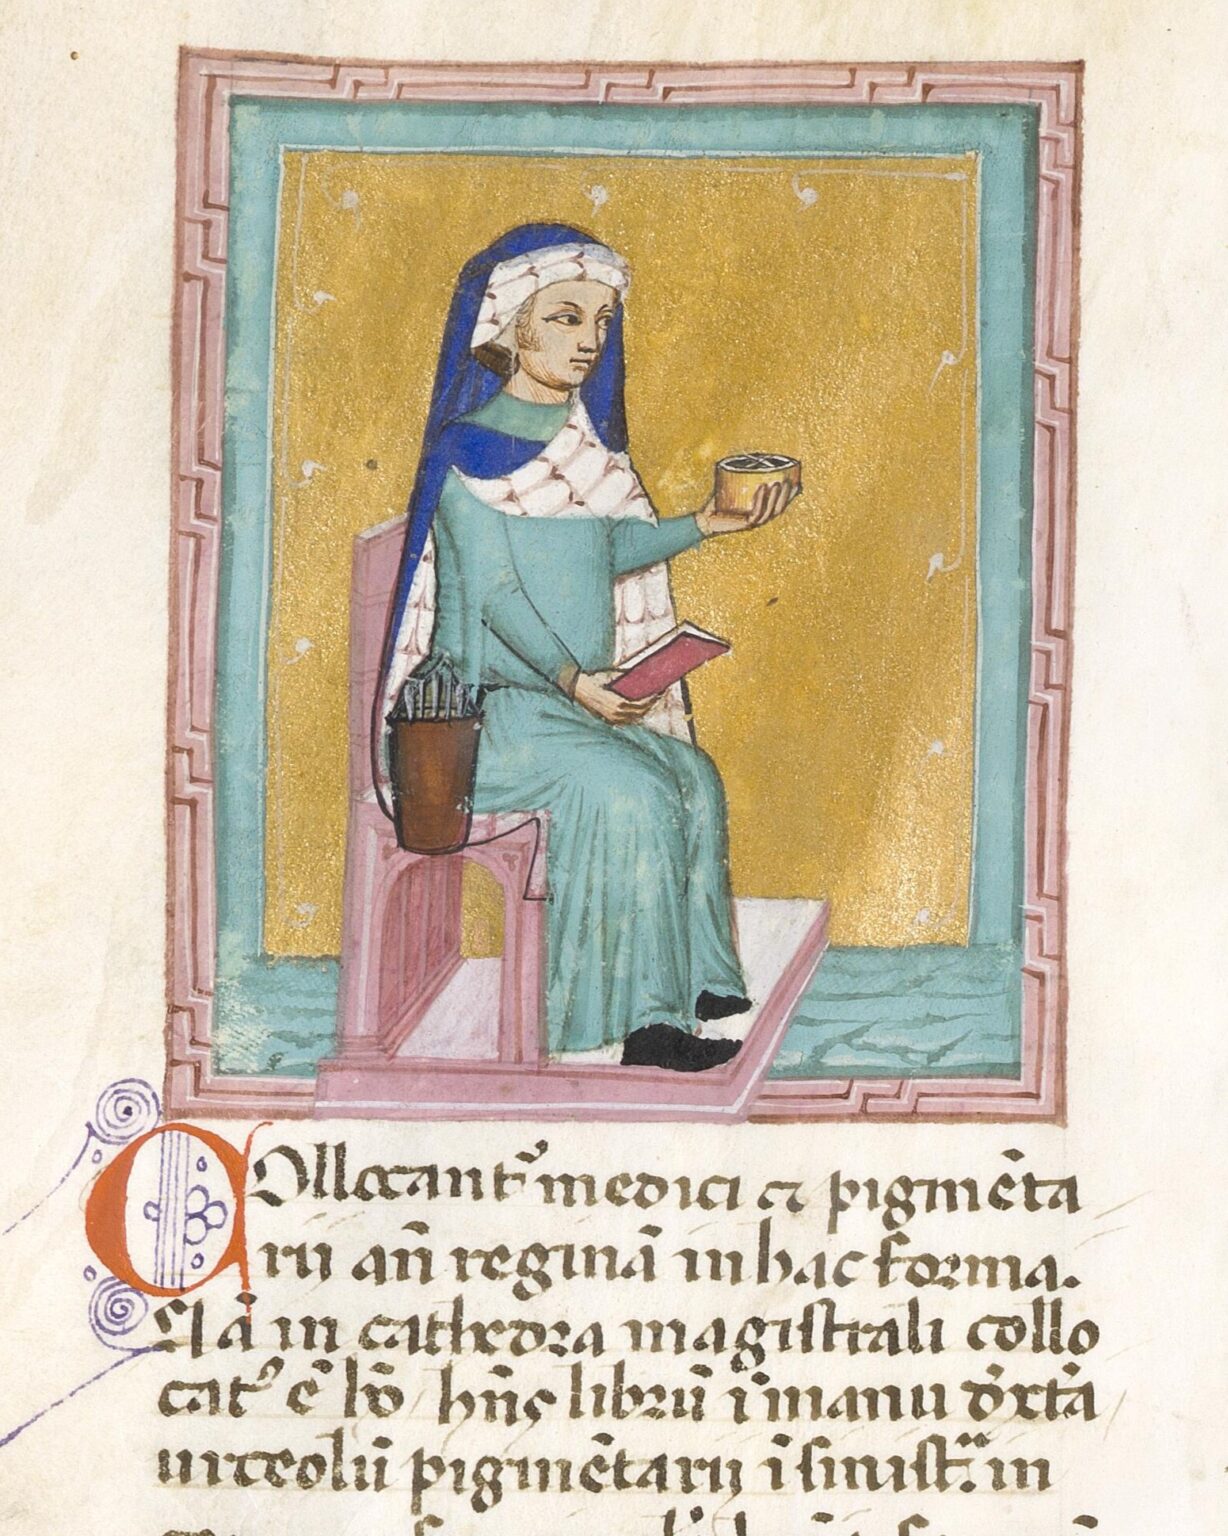 Collocantᷣ medici ⁊ pigmẽta
rii añ reginã in hac forma.
Nã in cathedra magistrali collo
catᷣ ẽ hõ hñs librũ ĩ manu dext̃a
urceolũ pigmẽtarij ĩ sinistᷓ: in